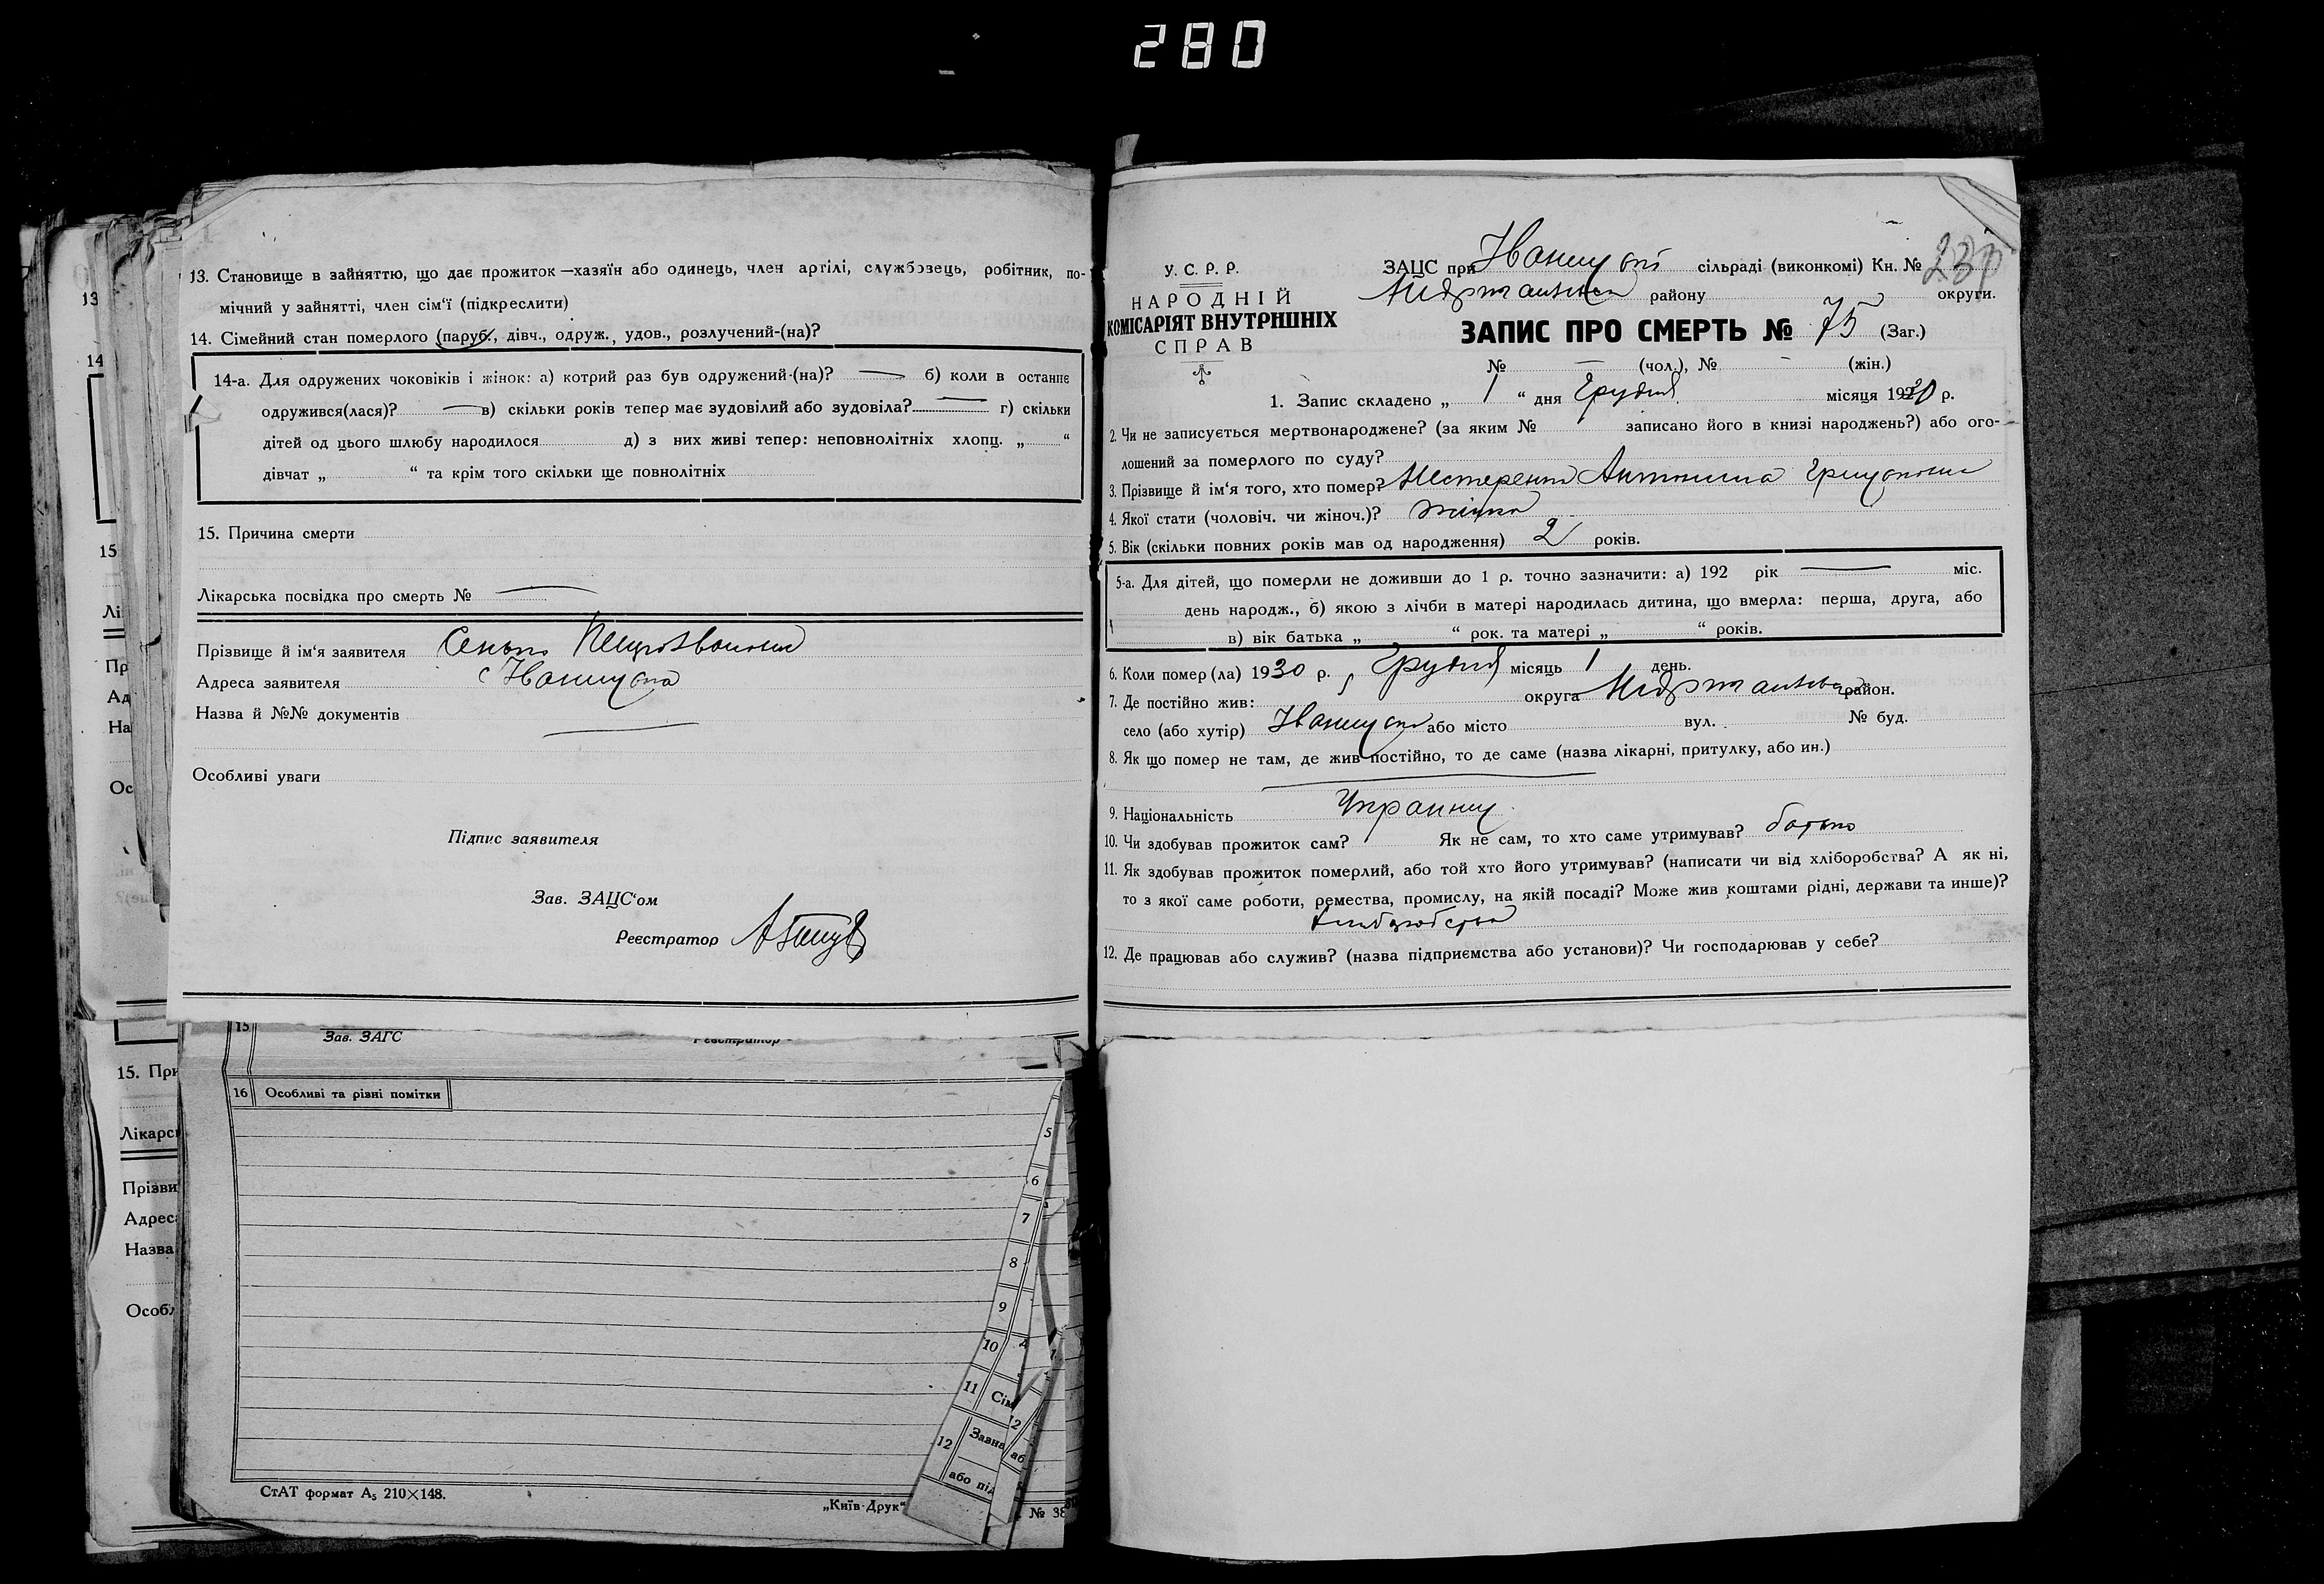 280
13. Становище в зайняттю, що дає прожиток—хазяїн або одинець, член артілі, службовець, робітник, по-
мічний у зайнятті, член сім‘ї (підкреслити)
14. Сімейний стан померлого (паруб., дівч., одруж., удов., розлучений-(на)?
14-а. Для одружених чоковіків і жінок: а) котрий раз був одружений-(на)? — б) коли в останнє
одружився(лася)? — в) скільки років тепер має зудовілий або зудовіла? — г) скільки
дітей од цього шлюбу народилося д) з них живі тепер: неповнолітніх хлопц. „ “
дівчат „ “ та крім того скільки ще повнолітніх
15. Причина смерти
Лікарська посвідка про смерть № —
Прізвище й ім‘я заявителя
Адреса заявителя
Назва й №№ документів —
Особливі уваги
Підпис заявителя
Зав. ЗАЦС‘ом
Реєстратор
Зав. ЗАГС Реєстратор
16 Особливі та різні помітки
СтАТ формат А5 210×148.
„Київ-Друк“
№ 38
13
14
15
15. При
Лікарсь
Прізви
Адрес
Назва
5
6
7
8
9
10
11 Сім
12
або під
У. С. Р. Р.
НАРОДНІЙ
КОМІСАРІЯТ ВНУТРІШНІХ
СПРАВ
ЗАЦС при сільраді (виконкомі) Кн. №
району округи.
ЗАПИС ПРО СМЕРТЬ № 75 (Заг.)
№ — (чол.), № - (жін.)
1. Запис складено „ 1 “ дня Грудня місяця 1930 р.
2. Чи не записується мертвонароджене? (за яким № записано його в книзі народжень?) або ого-
лошений за померлого по суду?
3. Прізвище й ім‘я того, хто помер? Нестеренко Антонина
4. Якої стати (чоловіч. чи жіноч.)? жінка
5. Вік (скільки повних років мав од народження) 2 років.
5-а. Для дітей, що померли не доживши до 1 р. точно зазначити: а) 192 рік — міс.
день народж., б) якою з лічби в матері народилась дитина, що вмерла: перша, друга, або
в) вік батька „ “ рок. та матері „ “ років.
6. Коли помер(ла) 1930 р. Грудня місяць 1 день.
7. Де постійно жив: округа район.
село (або хутір) або місто вул. № буд.
8. Як що помер не там, де жив постійно, то де саме (назва лікарні, притулку, або ин.)
9. Національність
10. Чи здобував прожиток сам? Як не сам, то хто саме утримував? батько
11. Як здобував прожиток померлий, або той хто його утримував? (написати чи від хліборобства? А як ні,
то з якої саме роботи, ремества, промислу, на якій посаді? Може жив коштами рідні, держави та инше)?
12. Де працював або служив? (назва підприємства або установи)? Чи господарював у себе?